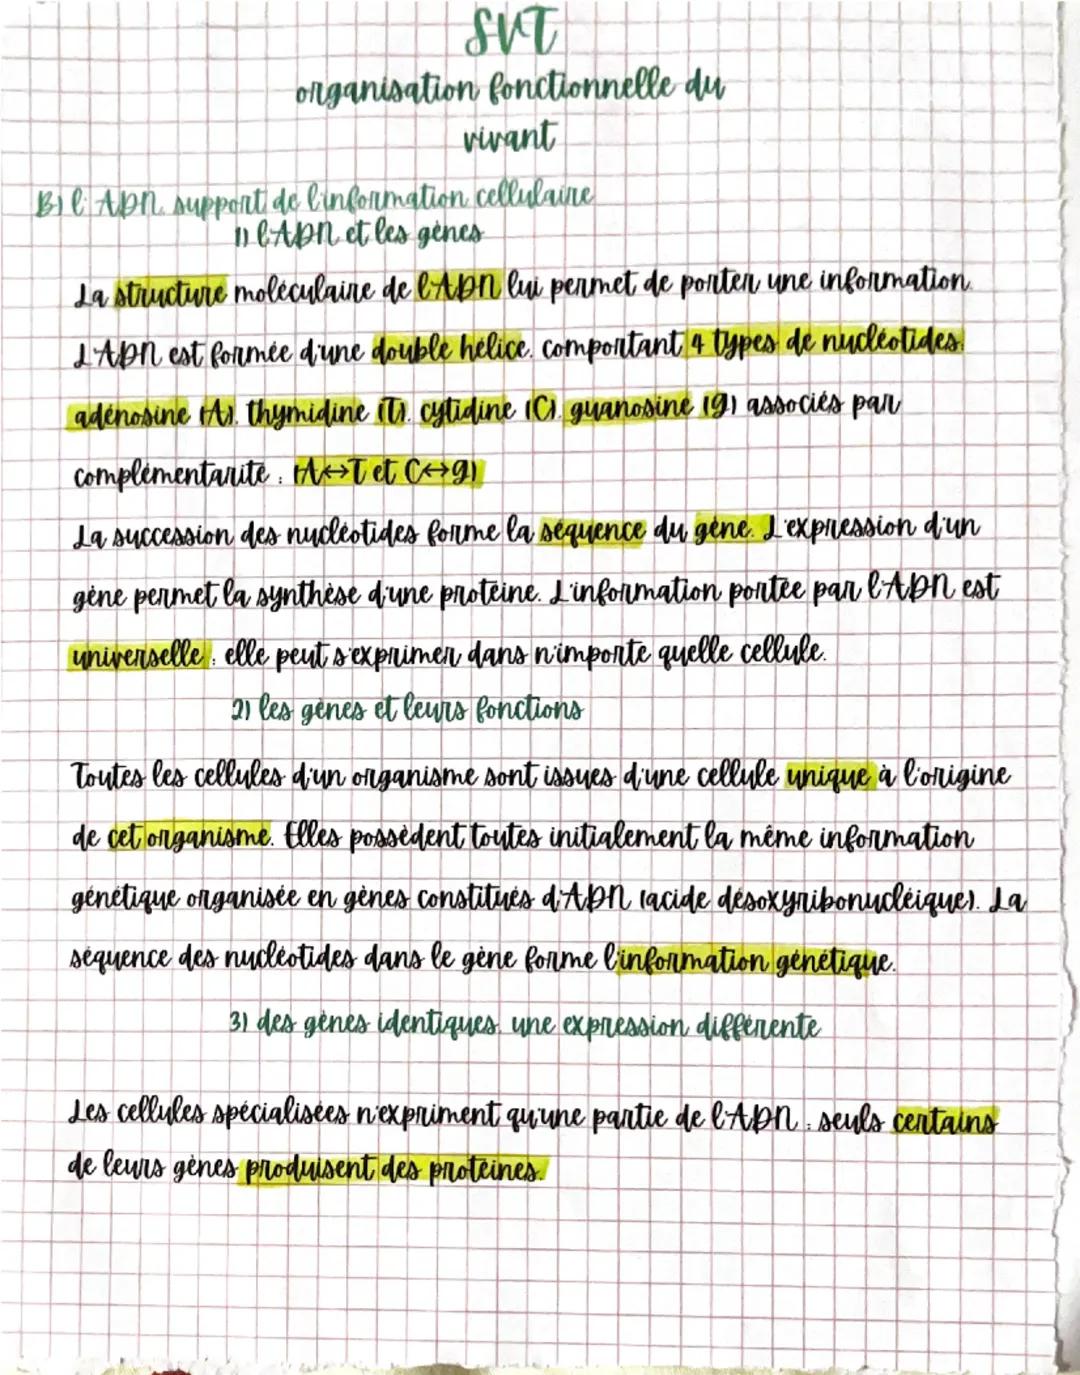 SVT
organisation fonctionnelle du
vivant
B) l'ADN, support de l'information cellulaire
1) l'ADN et les gènes
La structure moléculaire de l'ADN lui permet de porter une information.
L'ADN est formée d'une double hélice, comportant 4 types de nucléotides:
adénosine (A), thymidine (T), cytidine (C), guanosine (g) associés par
complémentarité : (A↔T et C↔g)
La succession des nucléotides forme la séquence du gène. L'expression d'un
gène permet la synthèse d'une protéine. L'information portée par l'ADN est
universelle : elle peut s'exprimer dans n'importe quelle cellule.
2) les gènes et leurs fonctions
Toutes les cellules d'un organisme sont issues d'une cellule unique à l'origine
de cet organisme. Elles possèdent toutes initialement la même information
génétique organisée en gènes constitués d'ADN (acide désoxyribonucléique). La
séquence des nucléotides dans le gène forme l'information génétique.
3) des gènes identiques, une expression différente
Les cellules spécialisées n'expriment qu'une partie de l'ADN : seuls certains
de leurs gènes produisent des protéines.